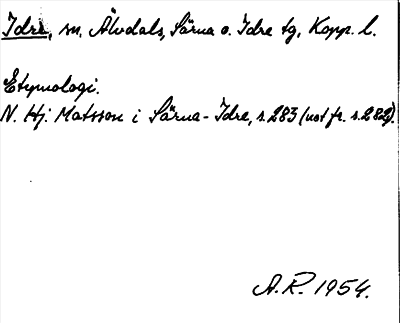 Idre, sn. Älvdals, Särna o. Idre tg, Kopp. l.
Etymologi.
N. Hj. Matsson i Särna-Idre, s. 283 (not fr. s. 282).
A. R. 1954.